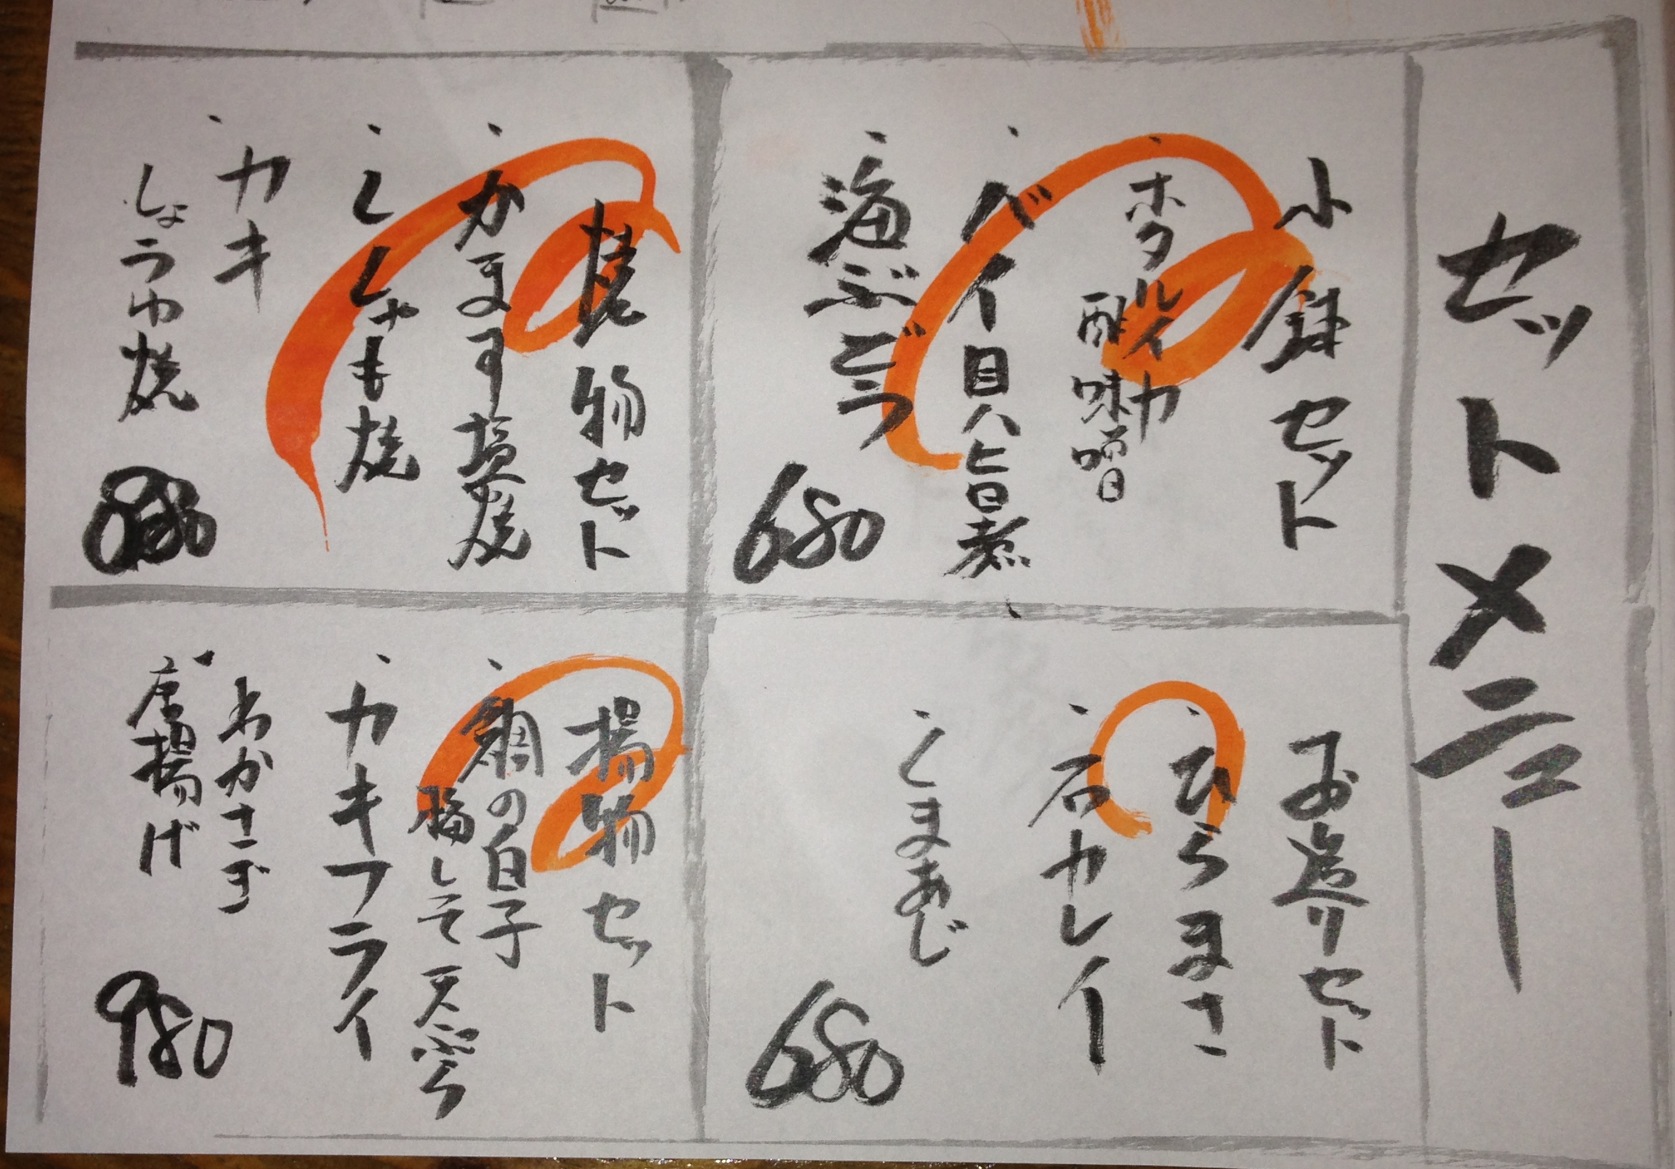 セットメニュー
小鉢セット
、ホタルイカ
酢味噌
、バイ貝旨煮
、海ぶどう
680
お造りセット
、ひらまさ
、石カレイ
、しまあじ
680
焼物セット
、かます塩焼
、ししゃも焼
、カキ
しょうゆ焼
揚物セット
、鯛の白子
しそ天ぷら
、カキフライ
、わかさぎ
唐揚げ
980